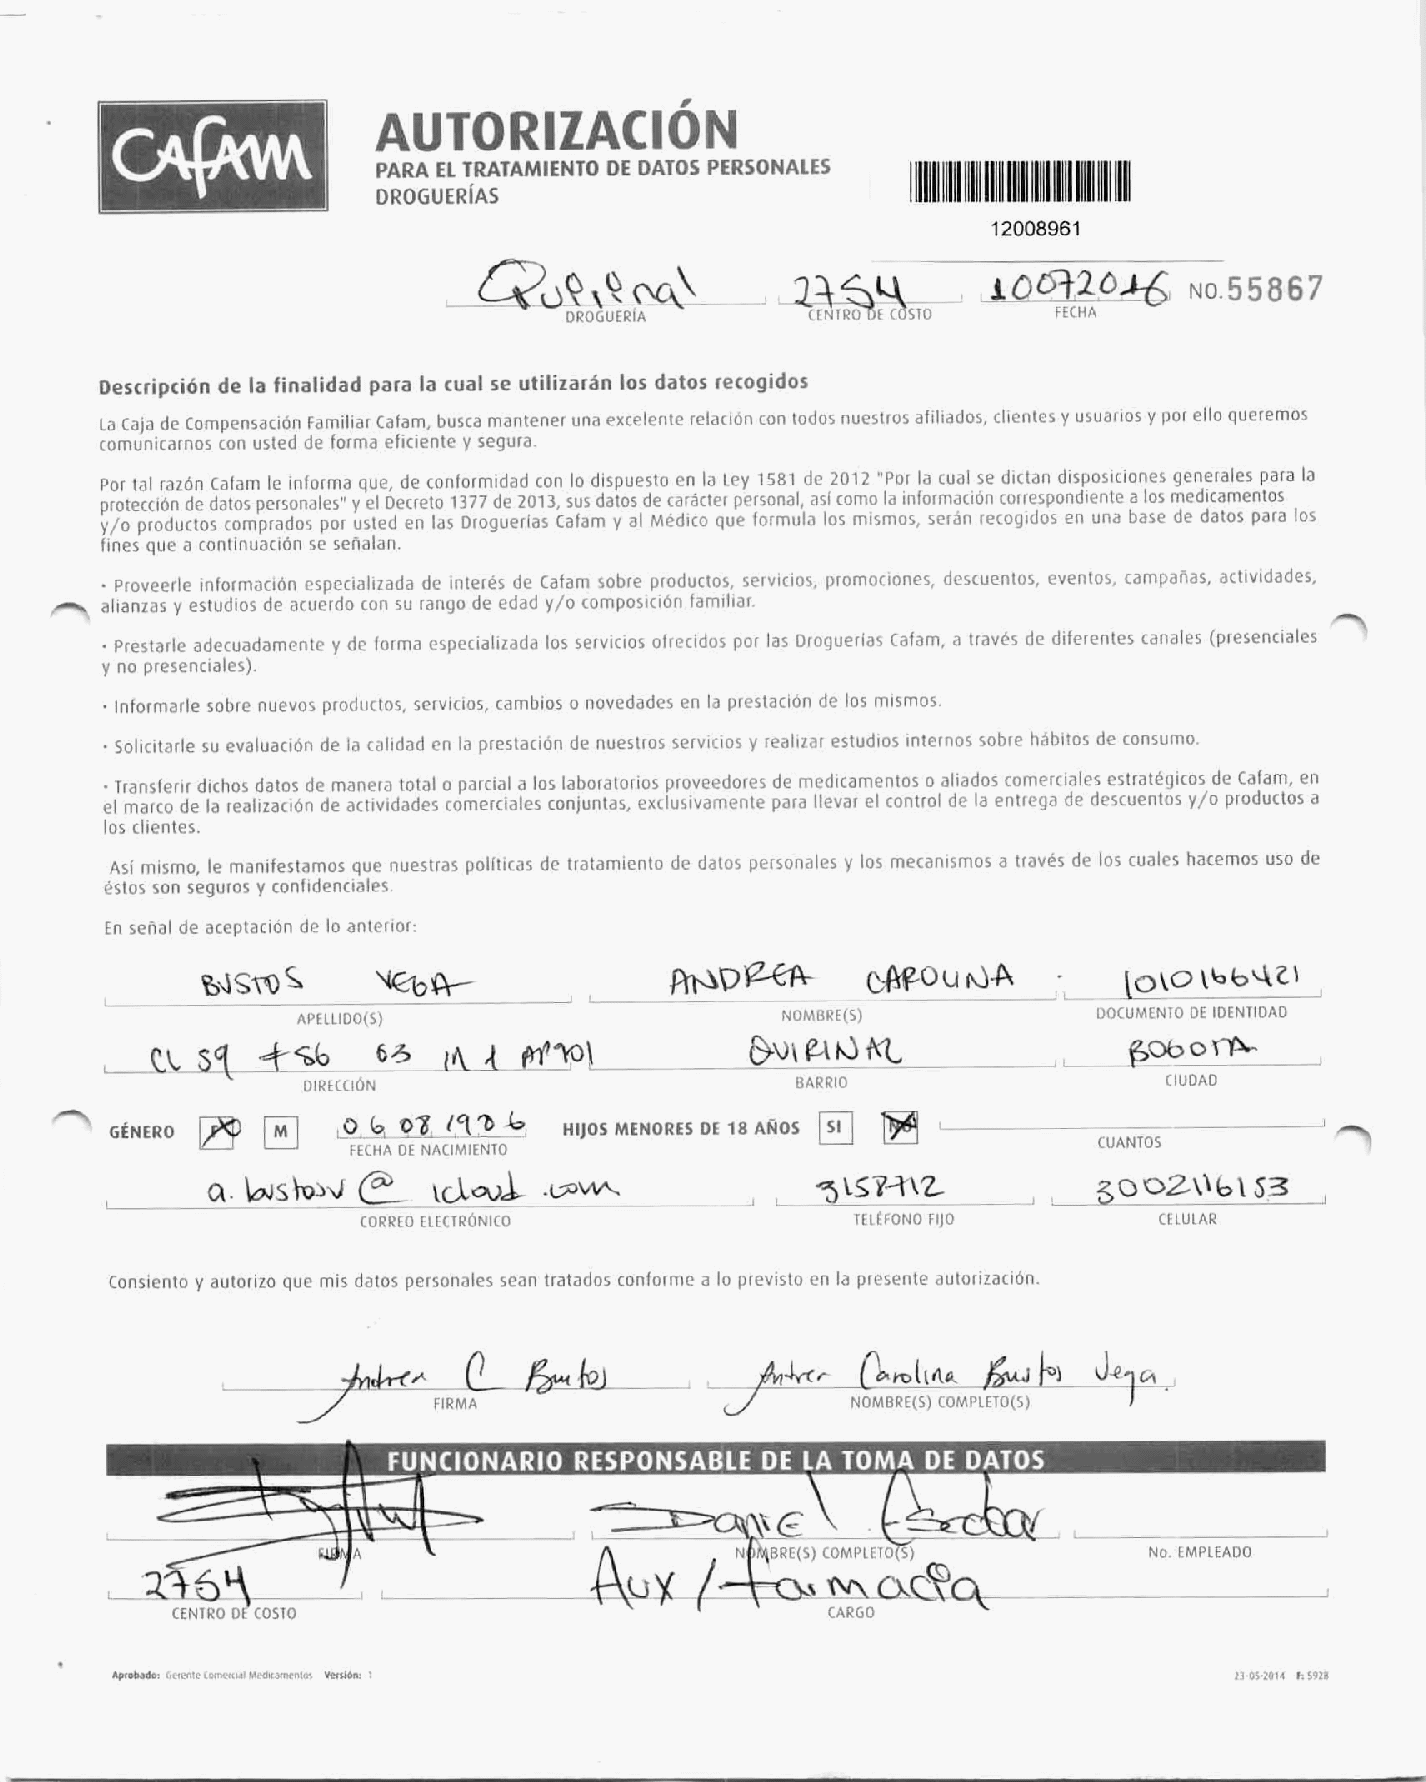 CAFAM
AUTORIZACIÓN
PARA EL TRATAMIENTO DE DATOS PERSONALES
DROGUERÍAS
12008961
2754 10072016 NO.55867
DROGUERÍA CENTRO DE COSTO FECHA
Descripción de la finalidad para la cual se utilizarán los datos recogidos
La Caja de Compensación Familiar Cafam, busca mantener una excelente relación con todos nuestros afiliados, clientes y usuarios y por ello queremos
comunicarnos con usted de forma eficiente y segura.
Por tal razón Cafam le informa que, de conformidad con lo dispuesto en la Ley 1581 de 2012 "Por la cual se dictan disposiciones generales para la
protección de datos personales" y el Decreto 1377 de 2013, sus datos de carácter personal, así como la información correspondiente a los medicamentos
y/o productos comprados por usted en las Droguerías Cafam y al Médico que formula los mismos, serán recogidos en una base de datos para los
fines que a continuación se señalan.
· Proveerle información especializada de interés de Cafam sobre productos, servicios, promociones, descuentos, eventos, campañas, actividades,
alianzas y estudios de acuerdo con su rango de edad y/o composición familiar.
· Prestarle adecuadamente y de forma especializada los servicios ofrecidos por las Droguerías Cafam, a través de diferentes canales (presenciales
y no presenciales).
· Informarle sobre nuevos productos, servicios, cambios o novedades en la prestación de los mismos.
· Solicitarle su evaluación de la calidad en la prestación de nuestros servicios y realizar estudios internos sobre hábitos de consumo.
· Transferir dichos datos de manera total o parcial a los laboratorios proveedores de medicamentos o aliados comerciales estratégicos de Cafam, en
el marco de la realización de actividades comerciales conjuntas, exclusivamente para llevar el control de la entrega de descuentos y/o productos a
los clientes.
Así mismo, le manifestamos que nuestras políticas de tratamiento de datos personales y los mecanismos a través de los cuales hacemos uso de
éstos son seguros y confidenciales.
En señal de aceptación de lo anterior:
BUSTOS VEGA ANDREA CAROLINA 1010166421
APELLIDO(S) NOMBRE(S) DOCUMENTO DE IDENTIDAD
CL 59 # 56 63 IN 1 AP 701 QUIRINAL BOGOTA
DIRECCIÓN BARRIO CIUDAD
GÉNERO M 06 08 1986 HIJOS MENORES DE 18 AÑOS SI
FECHA DE NACIMIENTO CUANTOS
a.bustosv@icloud.com 3002116153
CORREO ELECTRÓNICO TELÉFONO FIJO CELULAR
Consiento y autorizo que mis datos personales sean tratados conforme a lo previsto en la presente autorización.
Andrea C Bustos Andrea Carolina Bustos Vega.
FIRMA NOMBRE(S) COMPLETO(S)
FUNCIONARIO RESPONSABLE DE LA TOMA DE DATOS
Daniel Escobar
FIRMA NOMBRE(S) COMPLETO(S) No. EMPLEADO
2754 Aux/farmacia
CENTRO DE COSTO CARGO
Aprobado: Gerente Comercial Medicamentos Versión: 1 23-05-2014 F: 5928